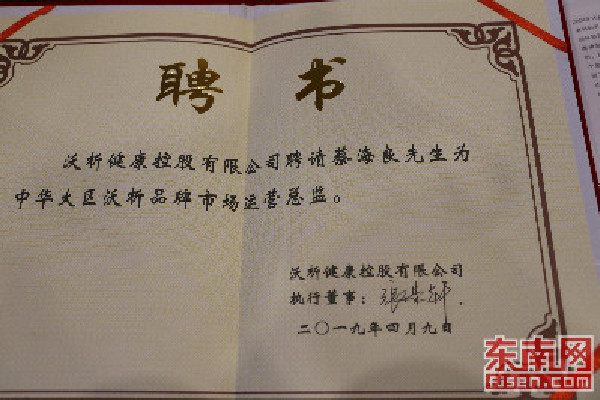 聘书
沃析健康控股有限公司聘请蔡海良先生为
中华大区沃析品牌市场运营总监。
沃析健康控股有限公司
执行董事：
二〇一九年四月九日
东南网
FJSEN.COM